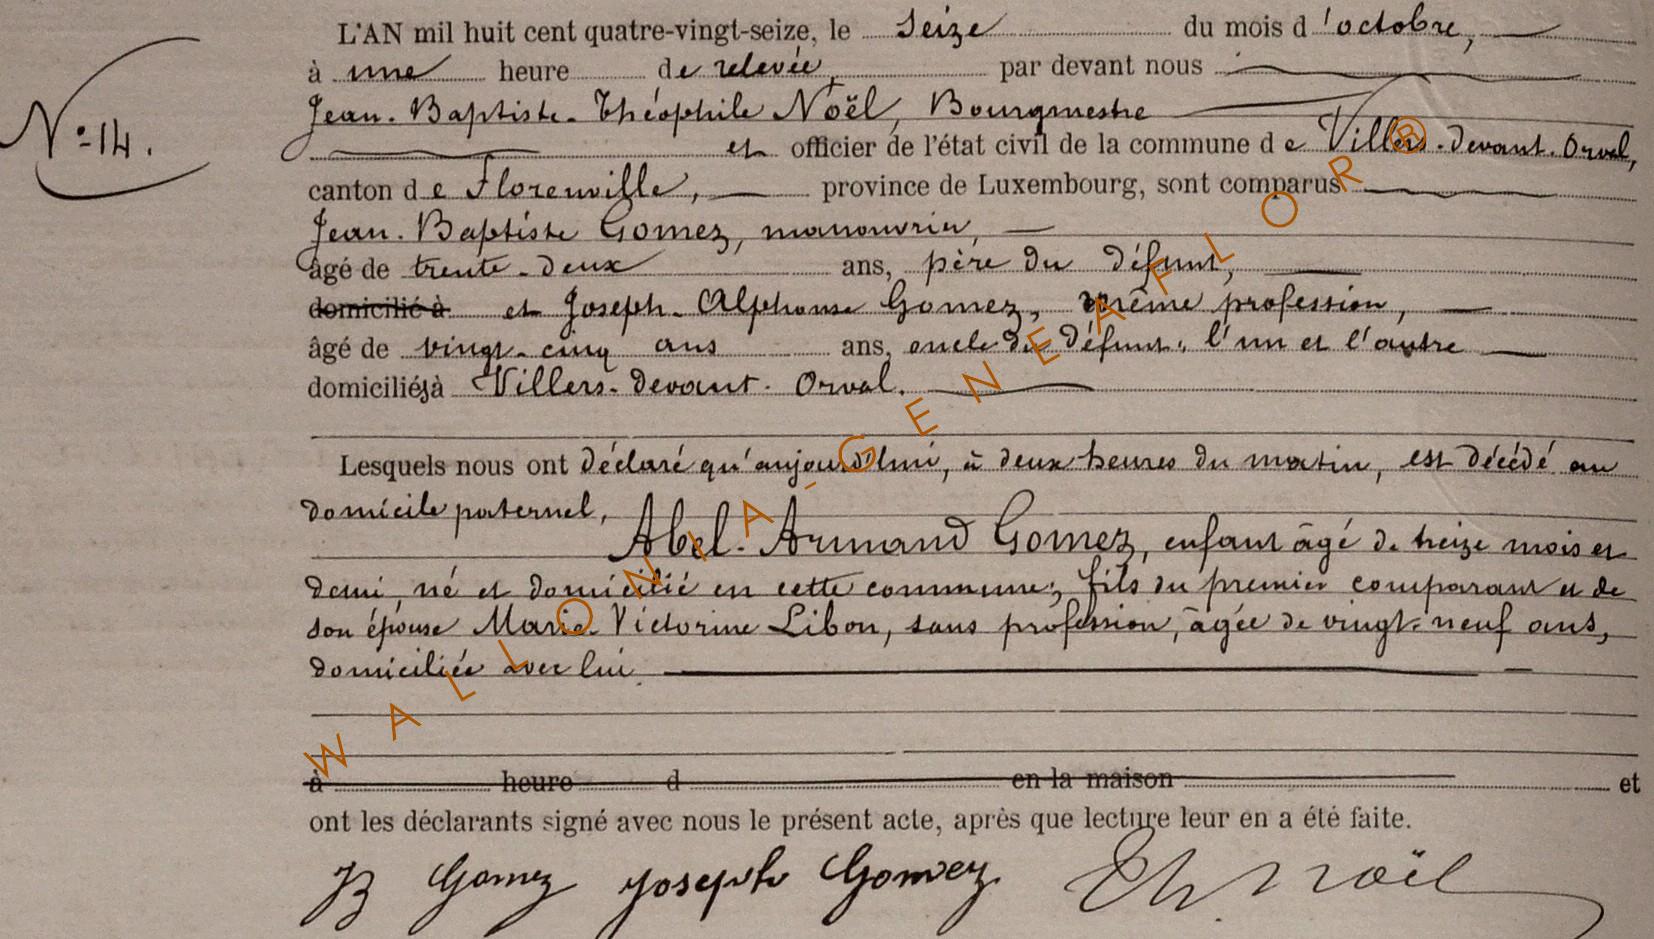 L'AN mil huit cent quatre-vingt-seize, le seize du mois d'octobre,
à une heure de relevée, par devant nous
N° 14.
Jean-Baptiste-Théophile Noël, Bourgmestre
et officier de l'état civil de la commune de Villers-devant-Orval,
canton de Florenville, province de Luxembourg, sont comparus
Jean-Baptiste Gomez, manouvrier,
âgé de trente-deux ans, père du défunt,
domicilié à et Joseph-Alphonse Gomez, même profession,
âgé de vingt-cinq ans ans, oncle du défunt, l'un et l'autre
domiciliés à Villers-devant-Orval.
Lesquels nous ont déclaré qu'aujourd'hui, à deux heures du matin, est décédé au
domicile paternel,
Abel-Armand Gomez, enfant âgé de treize mois et
demi, né et domicilié en cette commune, fils du premier comparant et de
son épouse Marie-Victorine Libon, sans profession, âgée de vingt-neuf ans,
domiciliée avec lui.
à heure d en la maison et
ont les déclarants signé avec nous le présent acte, après que lecture leur en a été faite.
JB Gomez Joseph Gomez Th. Noël
WALLONIA-GENEAFLOR®